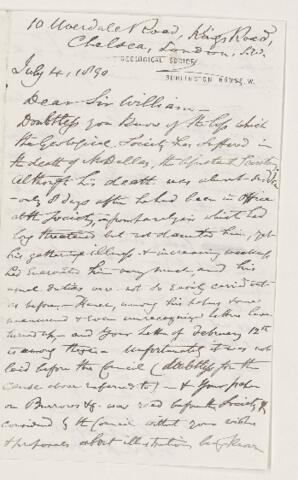 10 Uverdale Road, King's Road,
Chelsea, London, S.W.
GEOLOGICAL SOCIETY
BURLINGTON HOUSE, W.
July 4, 1890
Dear Sir William —
Doubtless you know of the loss which
the Geological Society has suffered in
the death of Mr Dallas, the Assistant Secretary.
Although his death was almost sudden
— only 8 days after he had been in office
at the Society, from paralysis which had
long threatened but not daunted him, yet
his gathering illness & increasing weakness
had enervated him very much, and his
usual duties were not so easily carried out as
before — Hence, among his papers some
unanswered & even unrecognized letters have
turned up — and Your letter of February 12th
is among these. Unfortunately it was not
laid before the Council (doubtless for the
cause above referred to) — & Your paper
on Burrows &c. was read before the Society &
considered by the Council without your wishes
& proposals about illustrations being known